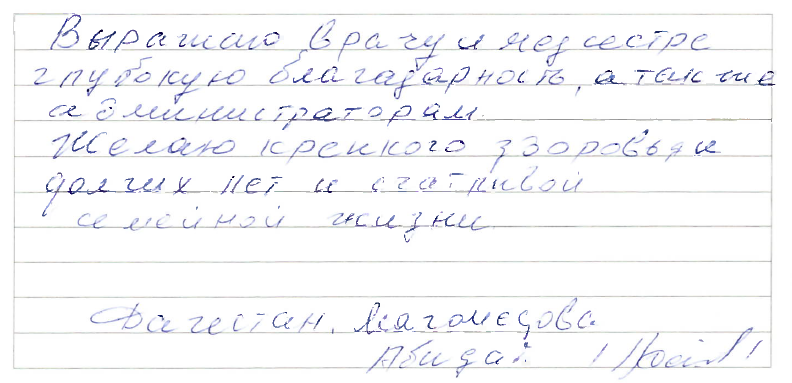 Выражаю врачу и медсестре
глубокую благадарность, а также
администраторам.
Желаю крепкого здоровья и
долгих лет и счастливой
семейной жизни.
Дагестан. Магомедова
Абидат